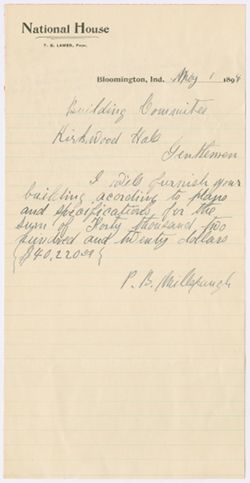 National House
T. B. LAWES, Prop.
Bloomington, Ind. May 1 1894
Building Committee
Kirkwood Hall
Gentlemen
I will furnish your
building according to plans
and specifications for the
sum of Forty thousand two
hundred and twenty dollars
{$40,220.00}
P. B. Millspaugh